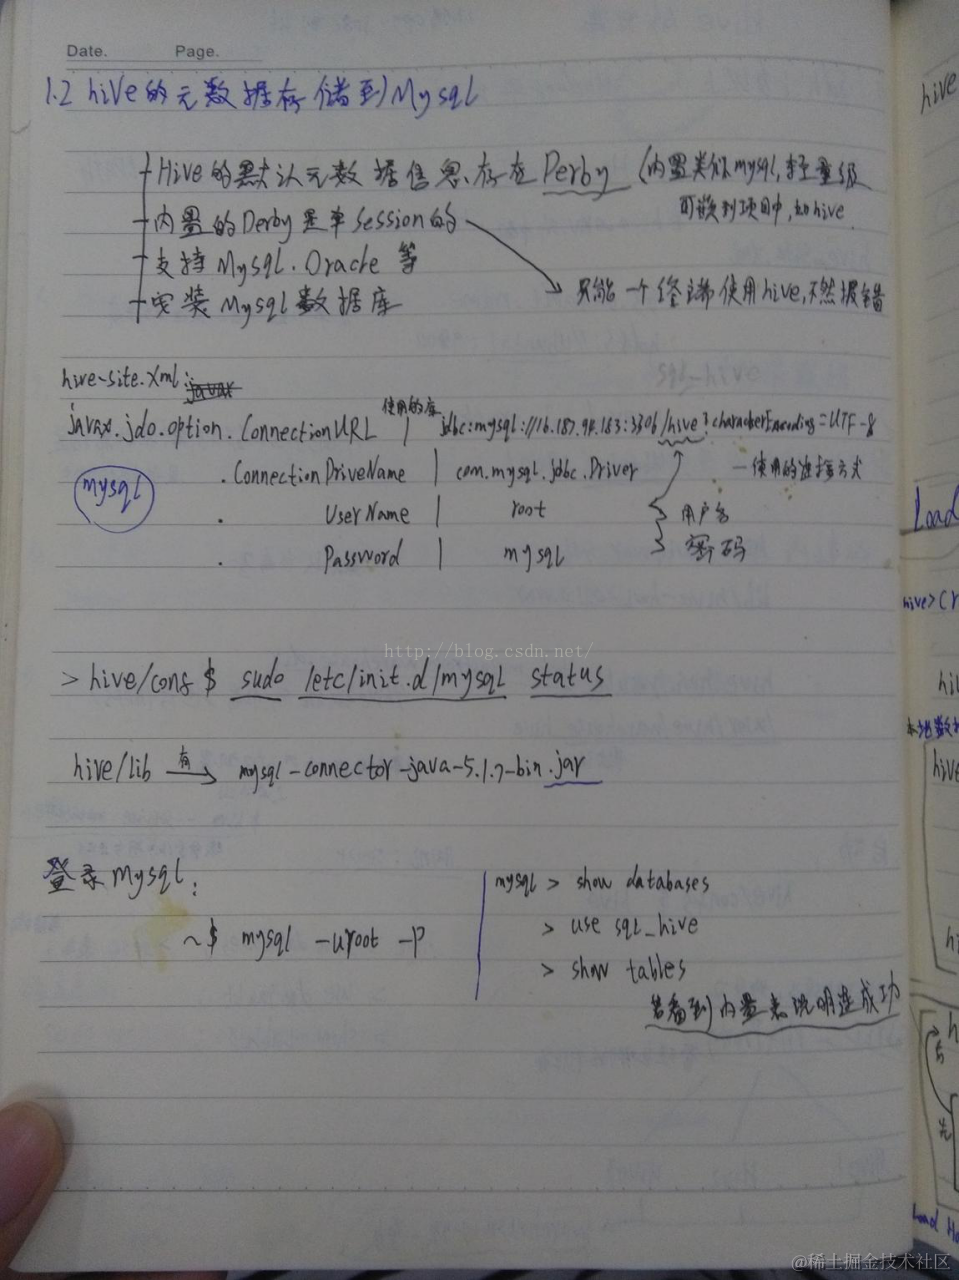 Date. Page.
1.2 hive的元数据存储到Mysql
Hive的默认元数据信息存在Derby (内置类似mysql,轻量级
可嵌到项目中,如hive
内置的Derby是单Session的
支持Mysql.Oracle等
只能一个终端使用hive,不然报错
安装Mysql数据库
hive-site.xml:
javax.jdo.option.ConnectionURL | 使用的库 jdbc:mysql://16.187.94.163:3306/hive?characterEncoding=UTF-8
mysql
.ConnectionDriveName | com.mysql.jdbc.Driver —使用的连接方式
. UserName | root 用户名
. Password | mysql 密码
http://blog.csdn.net/
> hive/conf $ sudo /etc/init.d/mysql status
hive/lib 有→ mysql-connector-java-5.1.7-bin.jar
登录Mysql:
~$ mysql -uroot -p
mysql > show databases
> use sql_hive
> show tables
若看到内置表说明连成功
hive
Load
hive>Cr
hiv
本地数据
hive
hi
h
Load
@稀土掘金技术社区